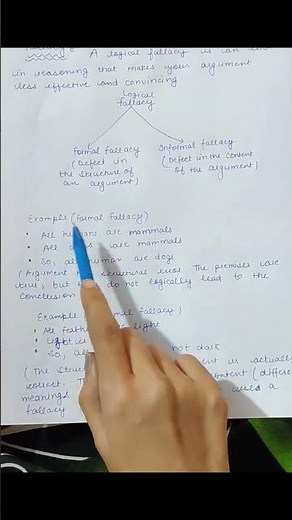 A logical fallacy is an
in reasoning that makes your argument
less effective and convincing
Logical
fallacy
Formal fallacy
(Defect in
the structure of
an argument)
Informal fallacy
(Defect in the content
of the argument)
Example (Formal fallacy)
• All humans are mammals
• All are mammals
• So, all human are dogs
(Argument has structural error. The premises are
true, but do not logically lead to the
conclusion
Example fallacy)
• All light
• Light
• So, all not dark
(The is actually
correct. content (different
meanings used a
fallacy